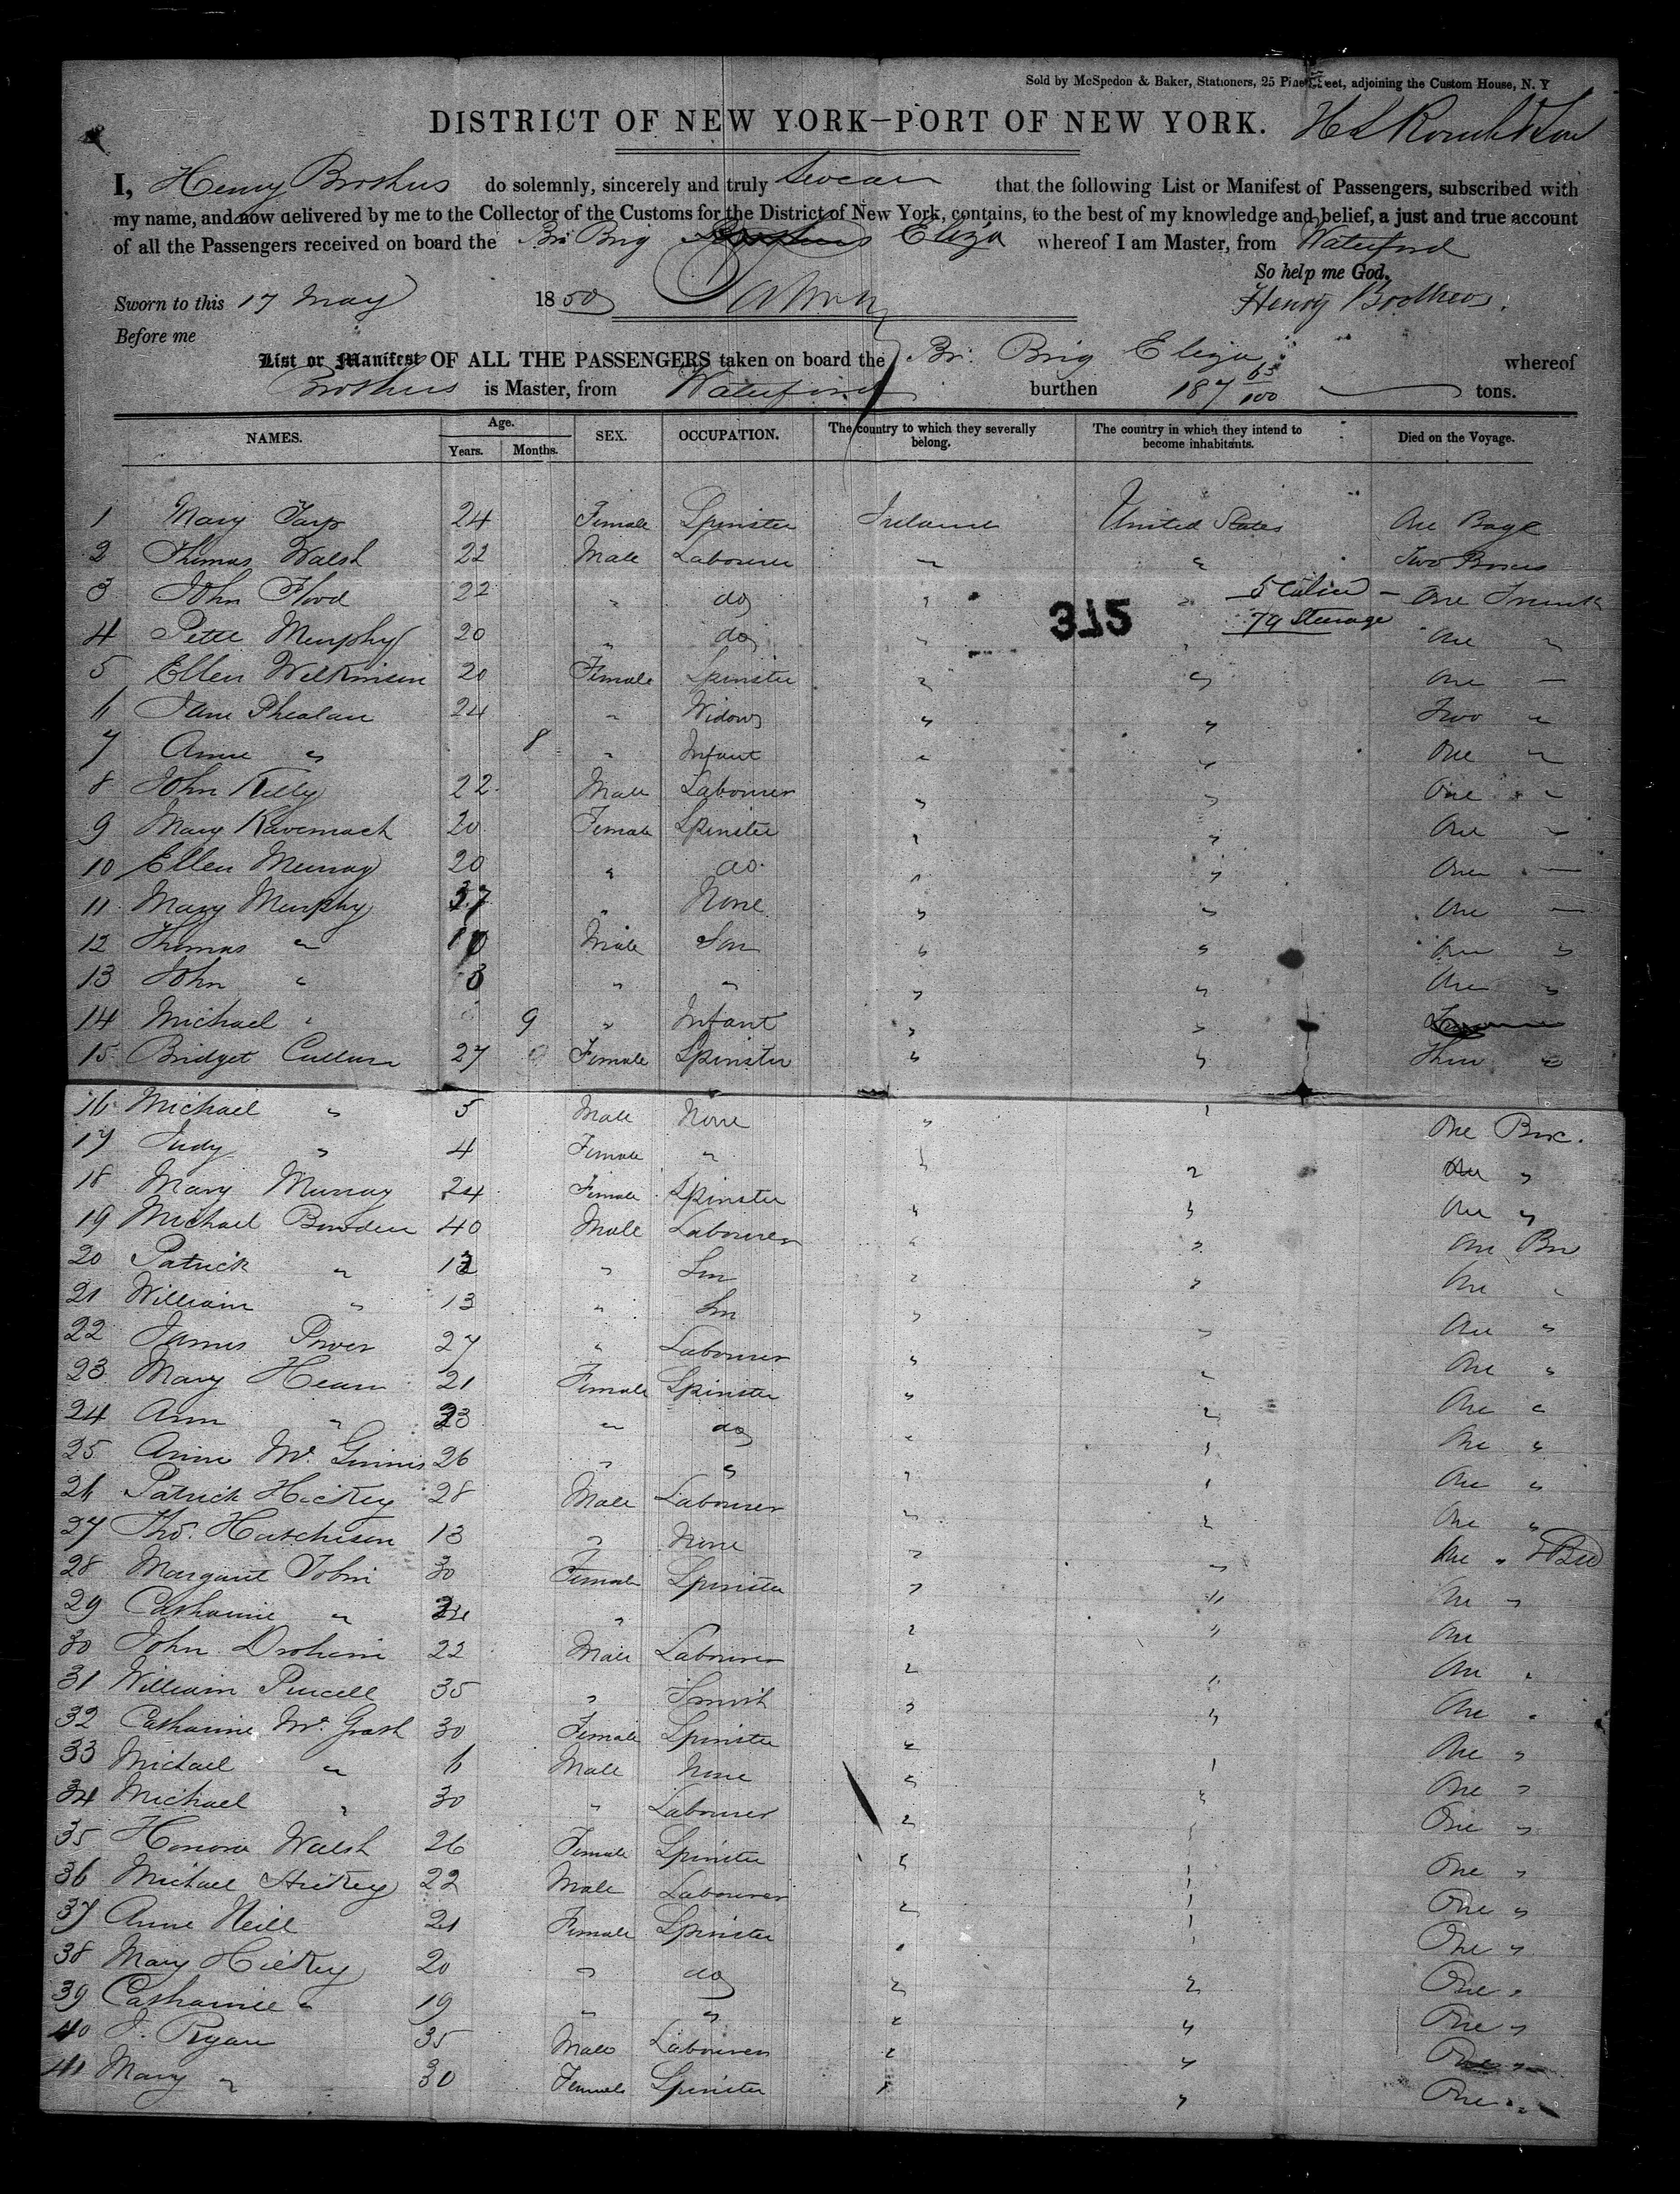 Sold by McSpedon & Baker, Stationers, 25 Pine Street, adjoining the Custom House, N. Y
DISTRICT OF NEW YORK—PORT OF NEW YORK.
I, Henry Brothus do solemnly, sincerely and truly Swear that the following List or Manifest of Passengers, subscribed with
my name, and now delivered by me to the Collector of the Customs for the District of New York, contains, to the best of my knowledge and belief, a just and true account
of all the Passengers received on board the Br Brig Eliza whereof I am Master, from Waterford
So help me God.
Sworn to this 17 May 1850 Henry Brothers.
Before me
List or Manifest OF ALL THE PASSENGERS taken on board the Br. Brig Eliza whereof
Brothus is Master, from Waterford burthen 187 63/100 tons.
NAMES. Age. Years. Months. SEX. OCCUPATION. The country to which they severally belong. The country in which they intend to become inhabitants. Died on the Voyage.
1 Mary 24 Female Spinster Ireland United States One Bage
2 Thomas Walsh 22 Male Labourer " " Two Boxes
3 John Flood 22 " do " " 5 Cabin – One Trunk
315
4 Peter Murphy 20 " do " " 79 Steerage One "
5 Ellen Wilkinson 20 Female Spinster " " One "
6 Jane Phealan 24 " Widow " " Two "
7 Anne " 8 " Infant " " One "
8 John Kelly 22 Male Labourer " " One "
9 Mary Kavernach 20 Female Spinster " " One "
10 Ellen Murray 20 " do. " " One "
11 Mary Murphy 37 " None " " One "
12 Thomas " 10 Male Son " " One "
13 John " 3 " " " " One "
14 Michael " 9 " Infant " "
15 Bridget Cullen 27 Female Spinster " " Three "
16 Michael " 5 Male None " " One Box.
17 Judy " 4 Female " " " One "
18 Mary Murray 24 Female Spinster " " One "
19 Michael Bowden 40 Male Labourer " " One Box
20 Patrick " 12 " Son " " One "
21 William " 13 " Son " " One "
22 James Power 27 " Labourer " " One "
23 Mary Hearn 21 Female Spinster " " One "
24 Ann " 23 " do " " One "
25 Anne Mc Ginnis 26 " " " " One "
26 Patrick Hickey 28 Male Labourer " " One "
27 Tho. Hutchison 13 " None " " One "
28 Margaret Tobin 30 Female Spinster " " One "
29 Catharine " " " " One
30 John Drohan 22 Male Labourer " " One "
31 William Purcell 35 " Smith " " One "
32 Catharine Mc Grath 30 Female Spinster " " One "
33 Michael " 6 Male None " " One "
34 Michael " 30 " Labourer " " One "
35 Honora Walsh 26 Female Spinster " " One "
36 Michael Hickey 22 Male Labourer " " One "
37 Anne Neill 21 Female Spinster " " One "
38 Mary Hickey 20 " do " " One "
39 Catharine " 19 " " " " One "
40 J. Ryan 35 Male Labourer " " One "
41 Mary " 30 Female Spinster " " One "